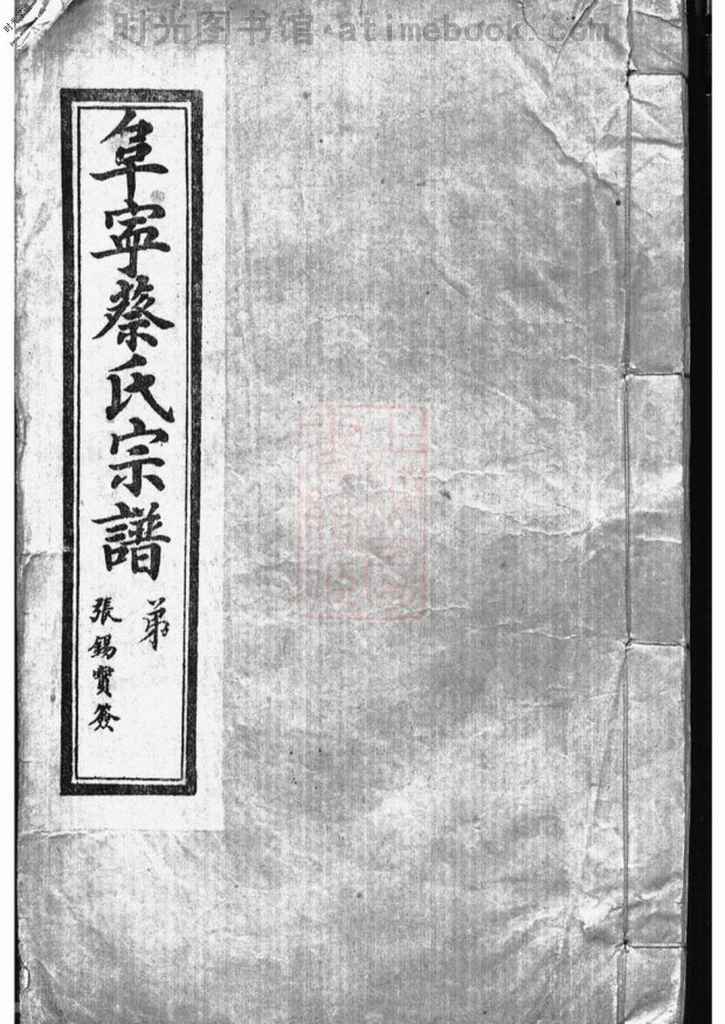 时光图书馆·atimebook.com
阜寧蔡氏宗譜
弟
張錫寶簽